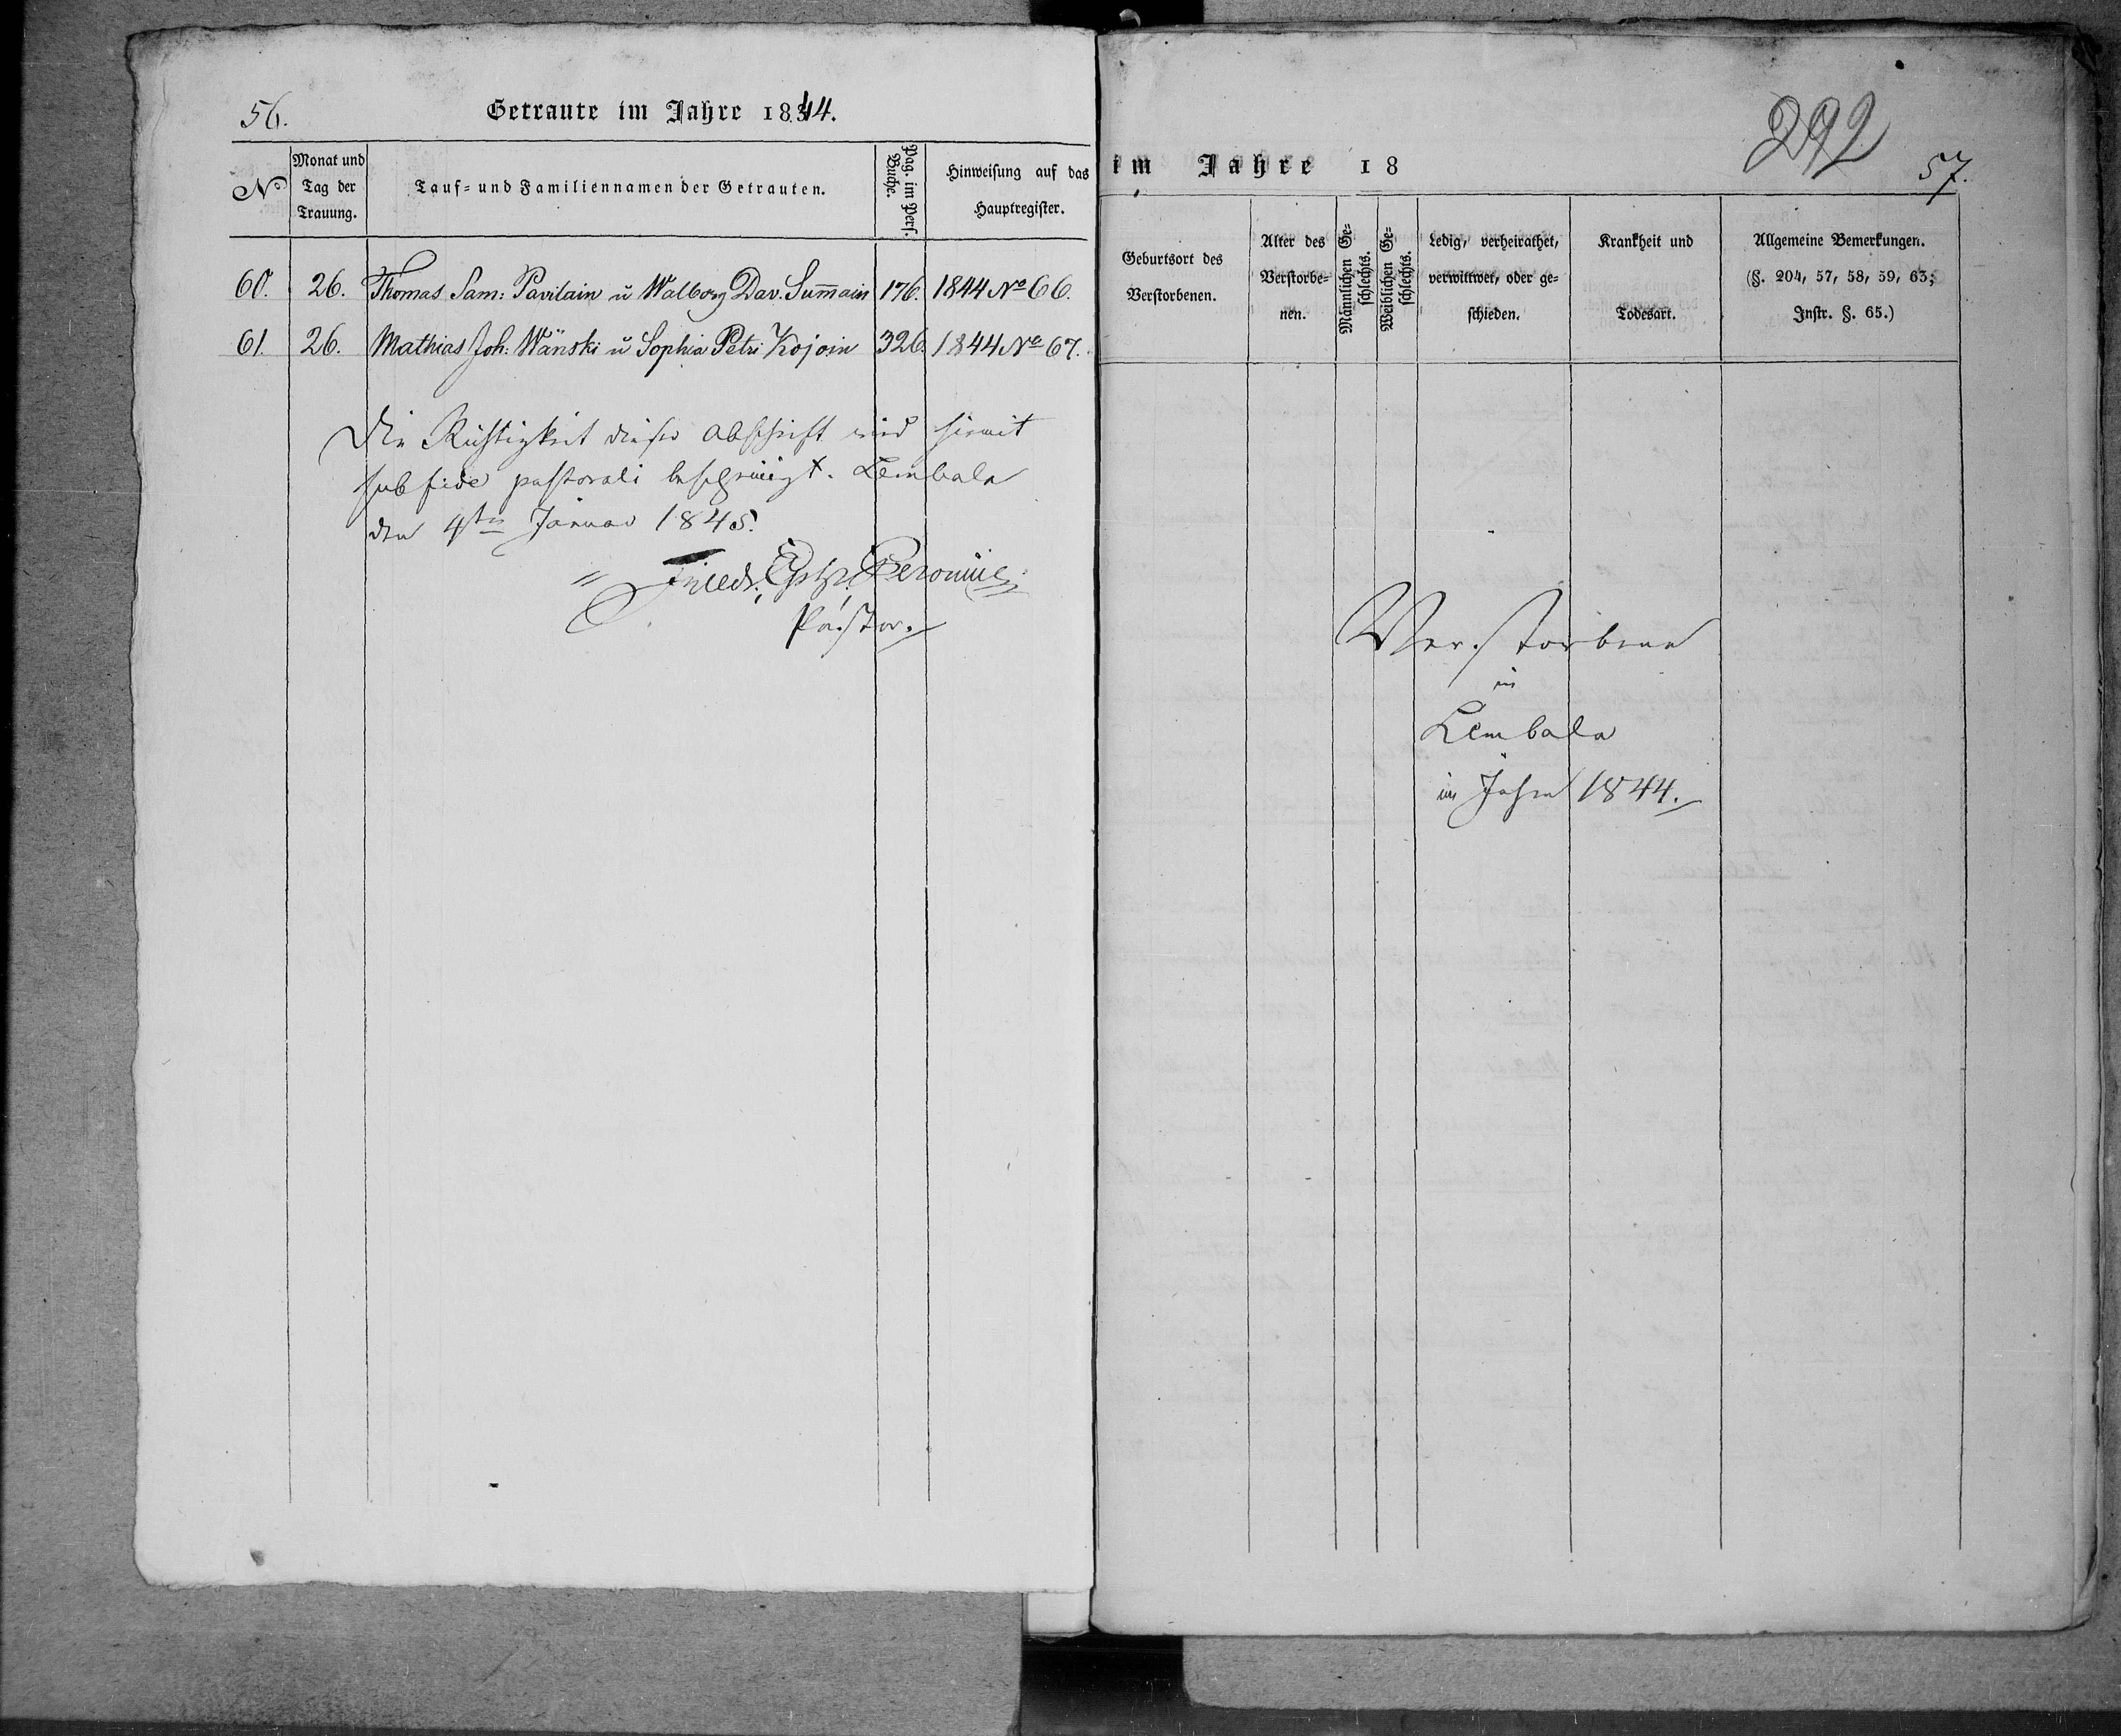 56.
Getraute im Jahre 1844.
No
Monat und
Tag der
Trauung.
Tauf- und Familiennamen der Getrauten.
Pag. im Pers.
Buche.
Hinweisung auf das
Hauptregister.
60. 26. Thomas Sam: Pavilain ü Walborg Dav. Sum̄ain 176. 1844 No 66.
61. 26. Mathias Joh: Wänski ü Sophia Petri Kojoin 326. 1844 No 67.
Die Richtigkeit dieser Abschrift wird hiemit
sub fide pastorali bescheinigt. Lembala
den 4ten Januar 1845.
Friedr.
Pastor.
292
57.
im Jahre 18
Geburtsort des
Verstorbenen.
Alter des
Verstorbe-
nen.
Männlichen Ge-
schlechts.
Weiblichen Ge-
schlechts.
Ledig, verheirathet,
verwittwet, oder ge-
schieden.
Krankheit und
Todesart.
Allgemeine Bemerkungen.
(§. 204, 57, 58, 59, 63;
Instr. §. 65.)
Verstorbene
in
Lembala
im Jahre 1844.